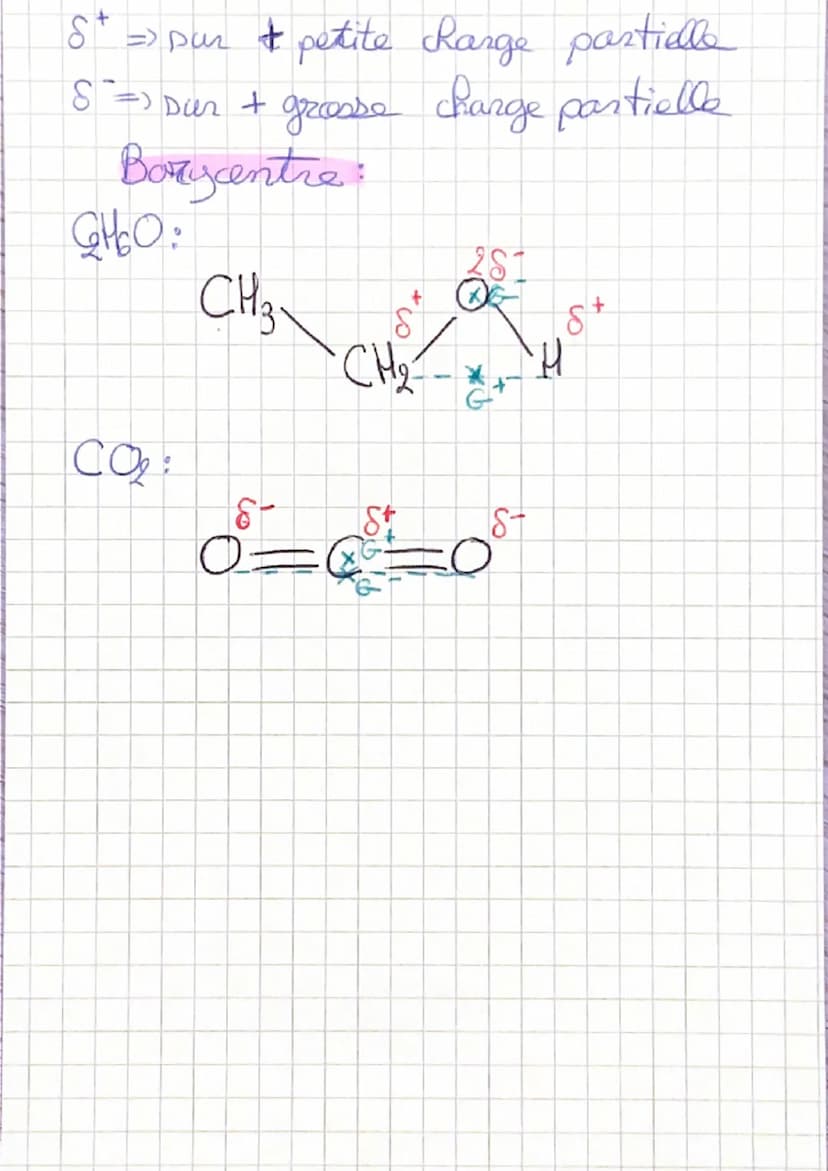 δ⁺ => sur + petite charge partielle
δ⁻ => sur + grosse charge partielle
Barycentre :
C₂H₆O :
2δ⁻
CH₃ δ⁺ O G⁻ δ⁺
CH₂ G⁺ H
CO₂ :
δ⁻ δ+ δ⁻
O = C G⁺ = O
G⁻